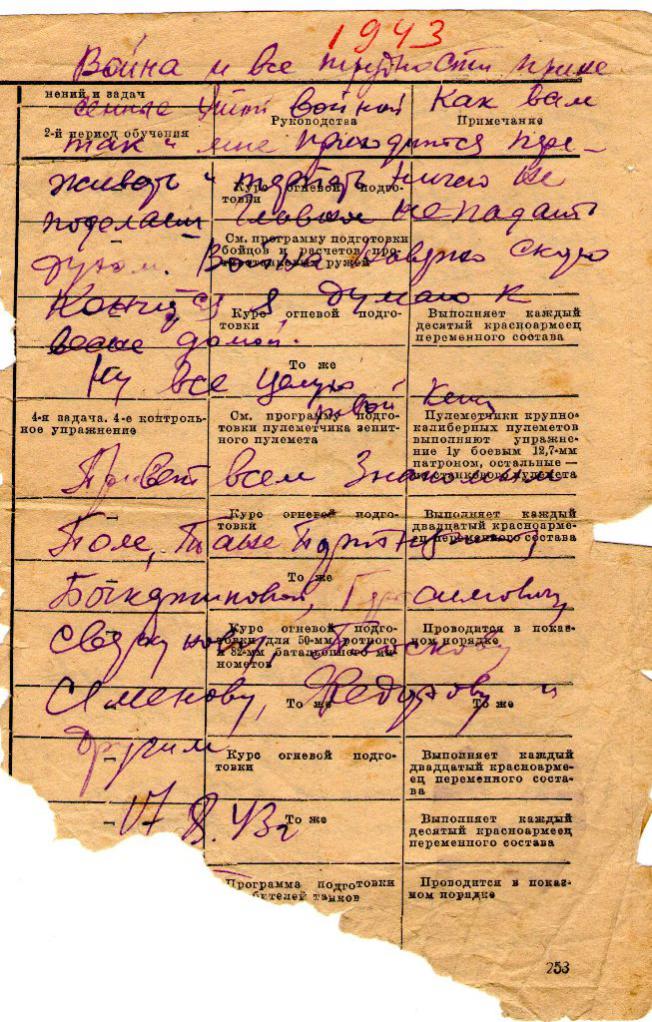 1943
Война и все трудности прине
нений и задач
сенные этой войной Как вам
2-й период обучения
Руководства
Примечание
так и мне приходится пере-
живать и терпеть ничего не
Курс огневой подго-
товки
поделаеш Главное не падать
духом. Война наверно скоро
См. программу подготовки
бойцов и расчетов про-
тивотанковых ружей
Кончится я думаю к
Курс огневой подго-
товки
Выполняет каждый
десятый красноармеец
переменного состава
весне домой.
То же
Ну все целую
4-я задача. 4-е контроль-
ное упражнение
См. программу подго-
товки пулеметчика зенит-
ного пулемета
Пулеметчики крупно-
калиберных пулеметов
выполняют упражне-
ние 1у боевым 12,7-мм
патроном, остальные —
из станкового пулемета
Привет всем Знакомым
Курс огневой подго-
товки
Выполняет каждый
двадцатый красноарме-
ец переменного состава
Поле, Тане
То же
Курс огневой подго-
товки для 50-мм ротного
и 82-мм батальонного ми-
нометов
Проводится в показ-
ном порядке
Федотову и
То же
То же
другим
Курс огневой подго-
товки
Выполняет каждый
двадцатый красноарме-
ец переменного соста-
ва
43г
То же
Выполняет каждый
десятый красноармеец
переменного состава
Программа подготовки
Проводится в показ-
ном порядке
253